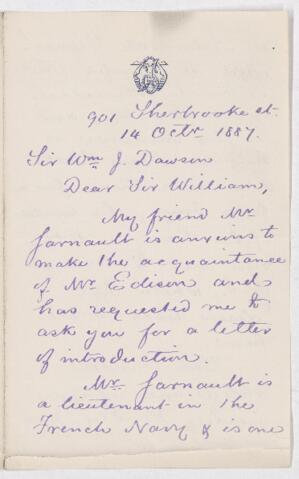 901 Sherbrooke st.
14 Octr 1887.
Sir Wm J. Dawson
Dear Sir William,
My friend Mr
Garnault is anxious to
make the acquaintance
of Mr Edison and
has requested me to
ask you for a letter
of introduction.
Mr Garnault is
a lieutenant in the
French Navy & is one